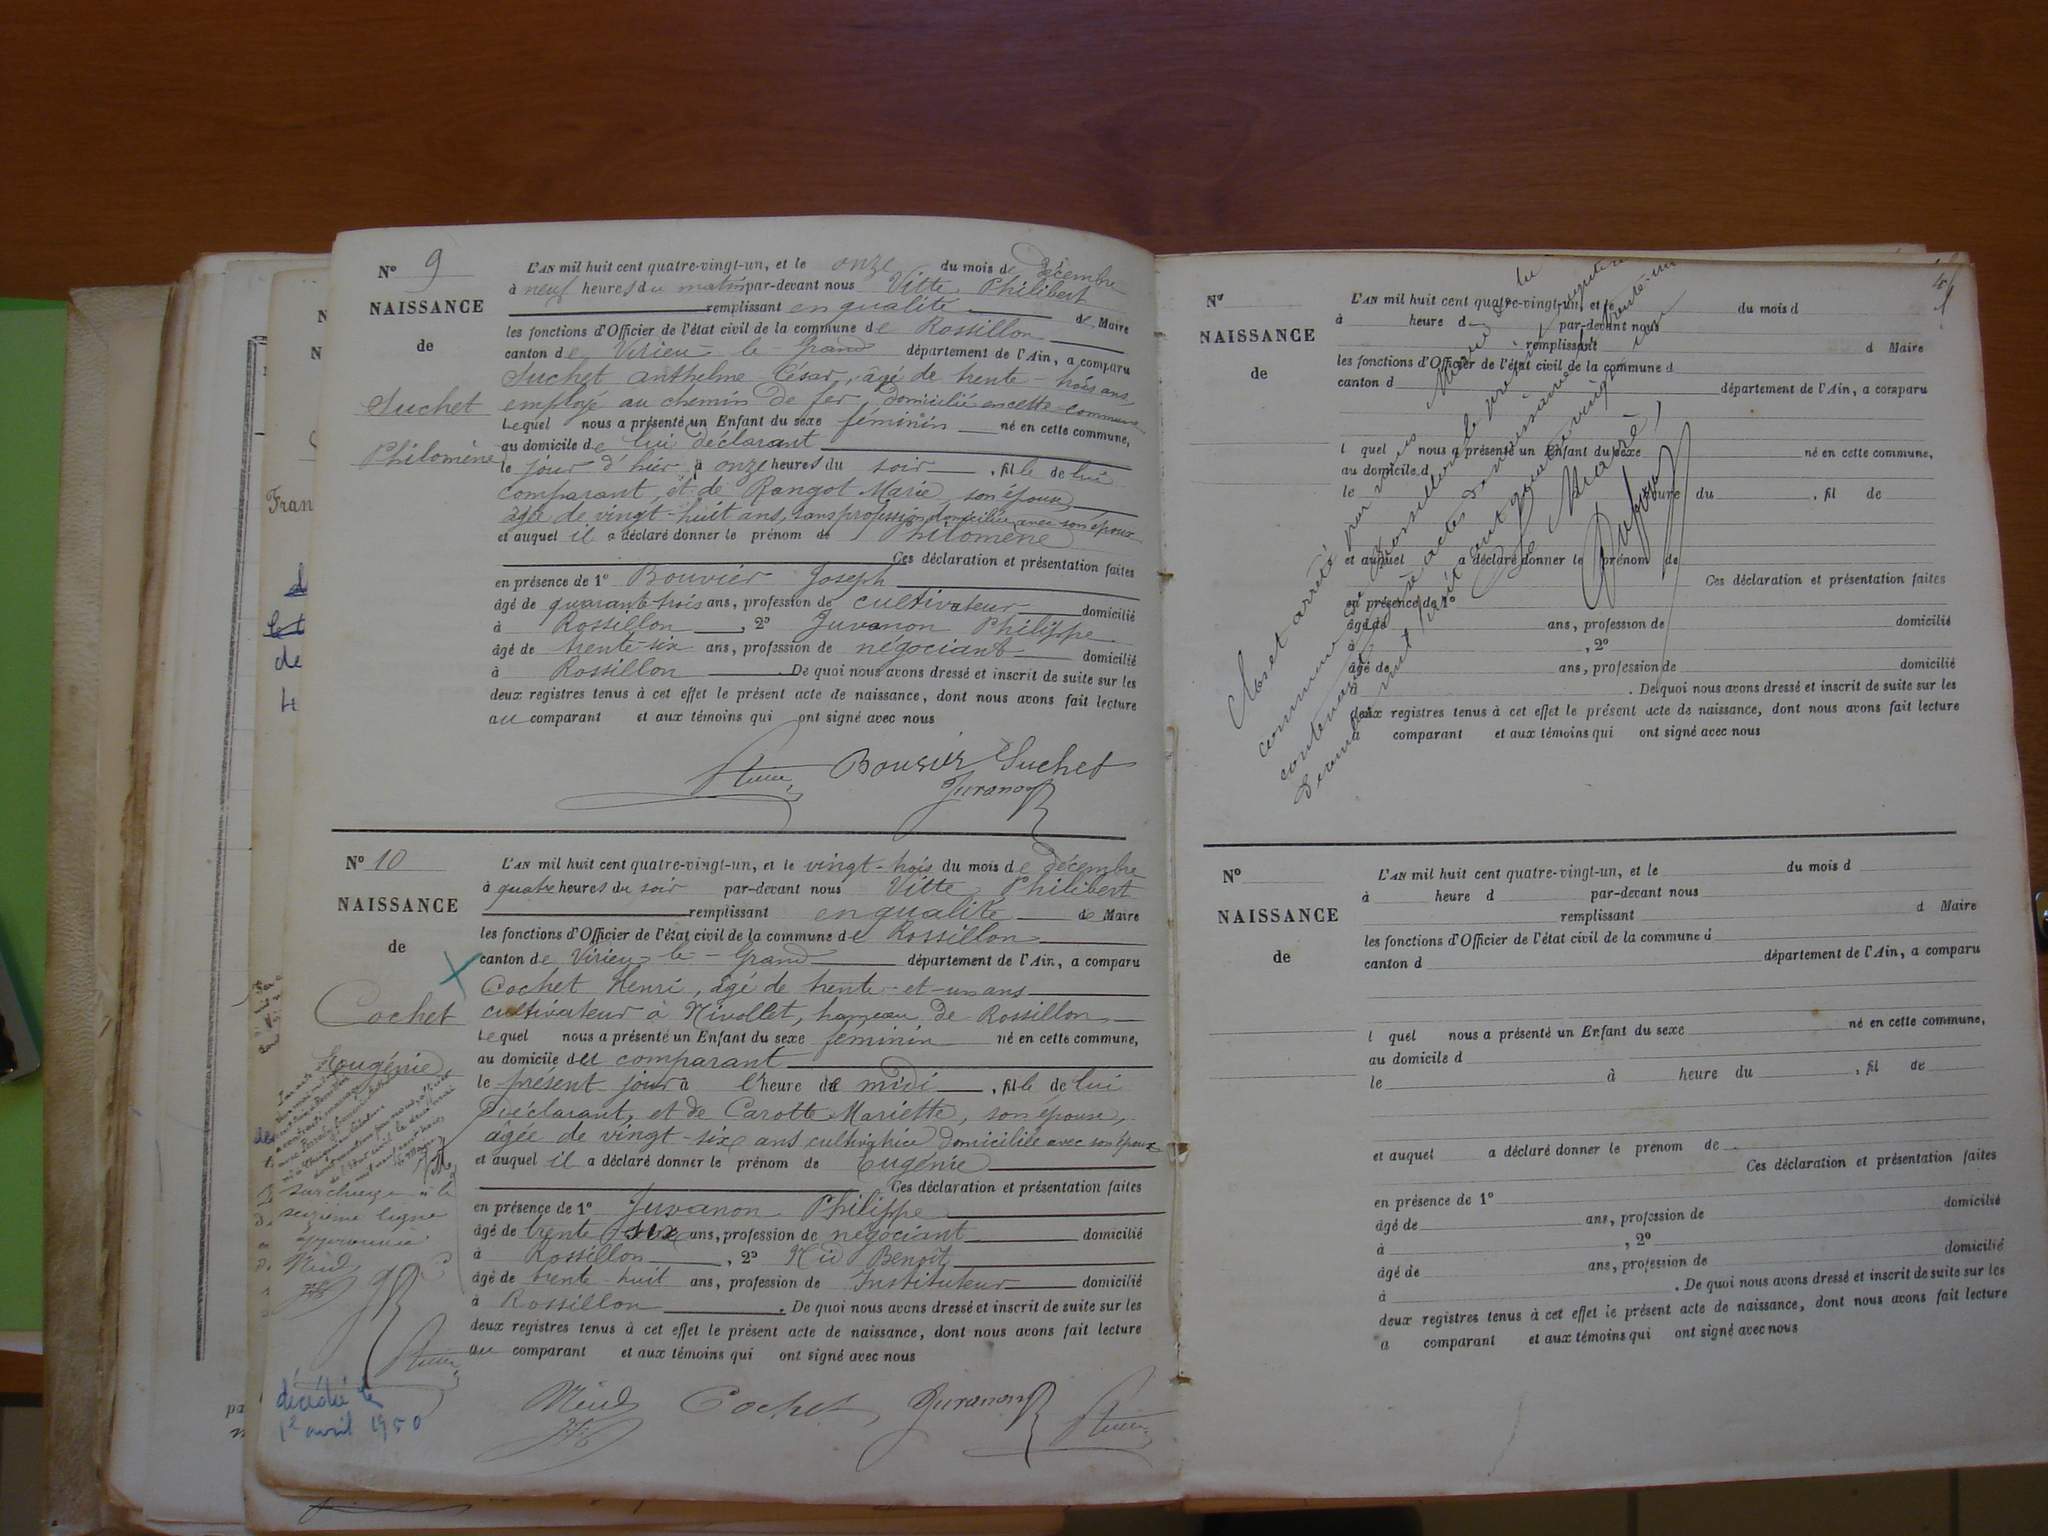 N° 9
NAISSANCE
de
Suchet
Philomène
L'AN mil huit cent quatre-vingt-un, et le onze du mois de décembre
à neuf heures du matin par-devant nous Vitte Philibert
remplissant en qualité de Maire
les fonctions d'Officier de l'état civil de la commune de Rossillon
canton de Virieu-le-Grand département de l'Ain, a comparu
Suchet Anthelme César, âgé de trente-trois ans
employé au chemin de fer, domicilié en cette commune
Lequel nous a présenté un Enfant du sexe féminin né en cette commune,
au domicile de lui déclarant
le jour d'hier à onze heures du soir, fille de lui
comparant, et de Rangot Marie, son épouse
âgée de vingt-huit ans, sans profession, domiciliée avec son époux
et auquel il a déclaré donner le prénom de Philomène
Ces déclaration et présentation faites
en présence de 1° Bouvier Joseph
âgé de quarante-trois ans, profession de cultivateur domicilié
à Rossillon, 2° Juvanon Philippe
âgé de trente-six ans, profession de négociant domicilié
à Rossillon. De quoi nous avons dressé et inscrit de suite sur les
deux registres tenus à cet effet le présent acte de naissance, dont nous avons fait lecture
au comparant et aux témoins qui ont signé avec nous
Bouvier Suchet
Juvanon
N° 10
NAISSANCE
de
Cochet
Eugénie
L'AN mil huit cent quatre-vingt-un, et le vingt-trois du mois de décembre
à quatre heures du soir par-devant nous Vitte Philibert
remplissant en qualité de Maire
les fonctions d'Officier de l'état civil de la commune de Rossillon
canton de Virieu-le-Grand département de l'Ain, a comparu
Cochet Henri, âgé de trente-et-un ans
cultivateur à Nivollet, hameau de Rossillon
Lequel nous a présenté un Enfant du sexe féminin né en cette commune,
au domicile du comparant
le présent jour à l'heure de midi, fille de lui
déclarant, et de Carotte Mariette, son épouse,
âgée de vingt-six ans cultivatrice domiciliée avec son époux
et auquel il a déclaré donner le prénom de Eugénie
Ces déclaration et présentation faites
en présence de 1° Juvanon Philippe
âgé de trente six ans, profession de négociant domicilié
à Rossillon, 2° Benoît
âgé de trente-huit ans, profession de Instituteur domicilié
à Rossillon. De quoi nous avons dressé et inscrit de suite sur les
deux registres tenus à cet effet le présent acte de naissance, dont nous avons fait lecture
au comparant et aux témoins qui ont signé avec nous
Cochet Juvanon
surcharge à la
seizième ligne
approuvée
décédée le
1er avril 1950
N°
NAISSANCE
de
L'AN mil huit cent quatre-vingt-un, et le du mois d
à heure d par-devant nous
remplissant d Maire
les fonctions d'Officier de l'état civil de la commune d
canton d département de l'Ain, a comparu
l quel nous a présenté un Enfant du sexe né en cette commune,
au domicile d
le heure du, fil de
et auquel a déclaré donner le prénom de
Ces déclaration et présentation faites
en présence de 1°
âgé de ans, profession de domicilié
à, 2°
âgé de ans, profession de domicilié
à. De quoi nous avons dressé et inscrit de suite sur les
deux registres tenus à cet effet le présent acte de naissance, dont nous avons fait lecture
a comparant et aux témoins qui ont signé avec nous
Clos et arrêté par nous Maire de la
commune de Rossillon le présent registre
contenant actes de naissance le trente-un
Décembre mil huit cent quatre vingt un
Le Maire,
N°
NAISSANCE
de
L'AN mil huit cent quatre-vingt-un, et le du mois d
à heure d par-devant nous
remplissant d Maire
les fonctions d'Officier de l'état civil de la commune d
canton d département de l'Ain, a comparu
l quel nous a présenté un Enfant du sexe né en cette commune,
au domicile d
le à heure du, fil de
et auquel a déclaré donner le prénom de
Ces déclaration et présentation faites
en présence de 1°
âgé de ans, profession de domicilié
à, 2°
âgé de ans, profession de domicilié
à. De quoi nous avons dressé et inscrit de suite sur les
deux registres tenus à cet effet le présent acte de naissance, dont nous avons fait lecture
a comparant et aux témoins qui ont signé avec nous